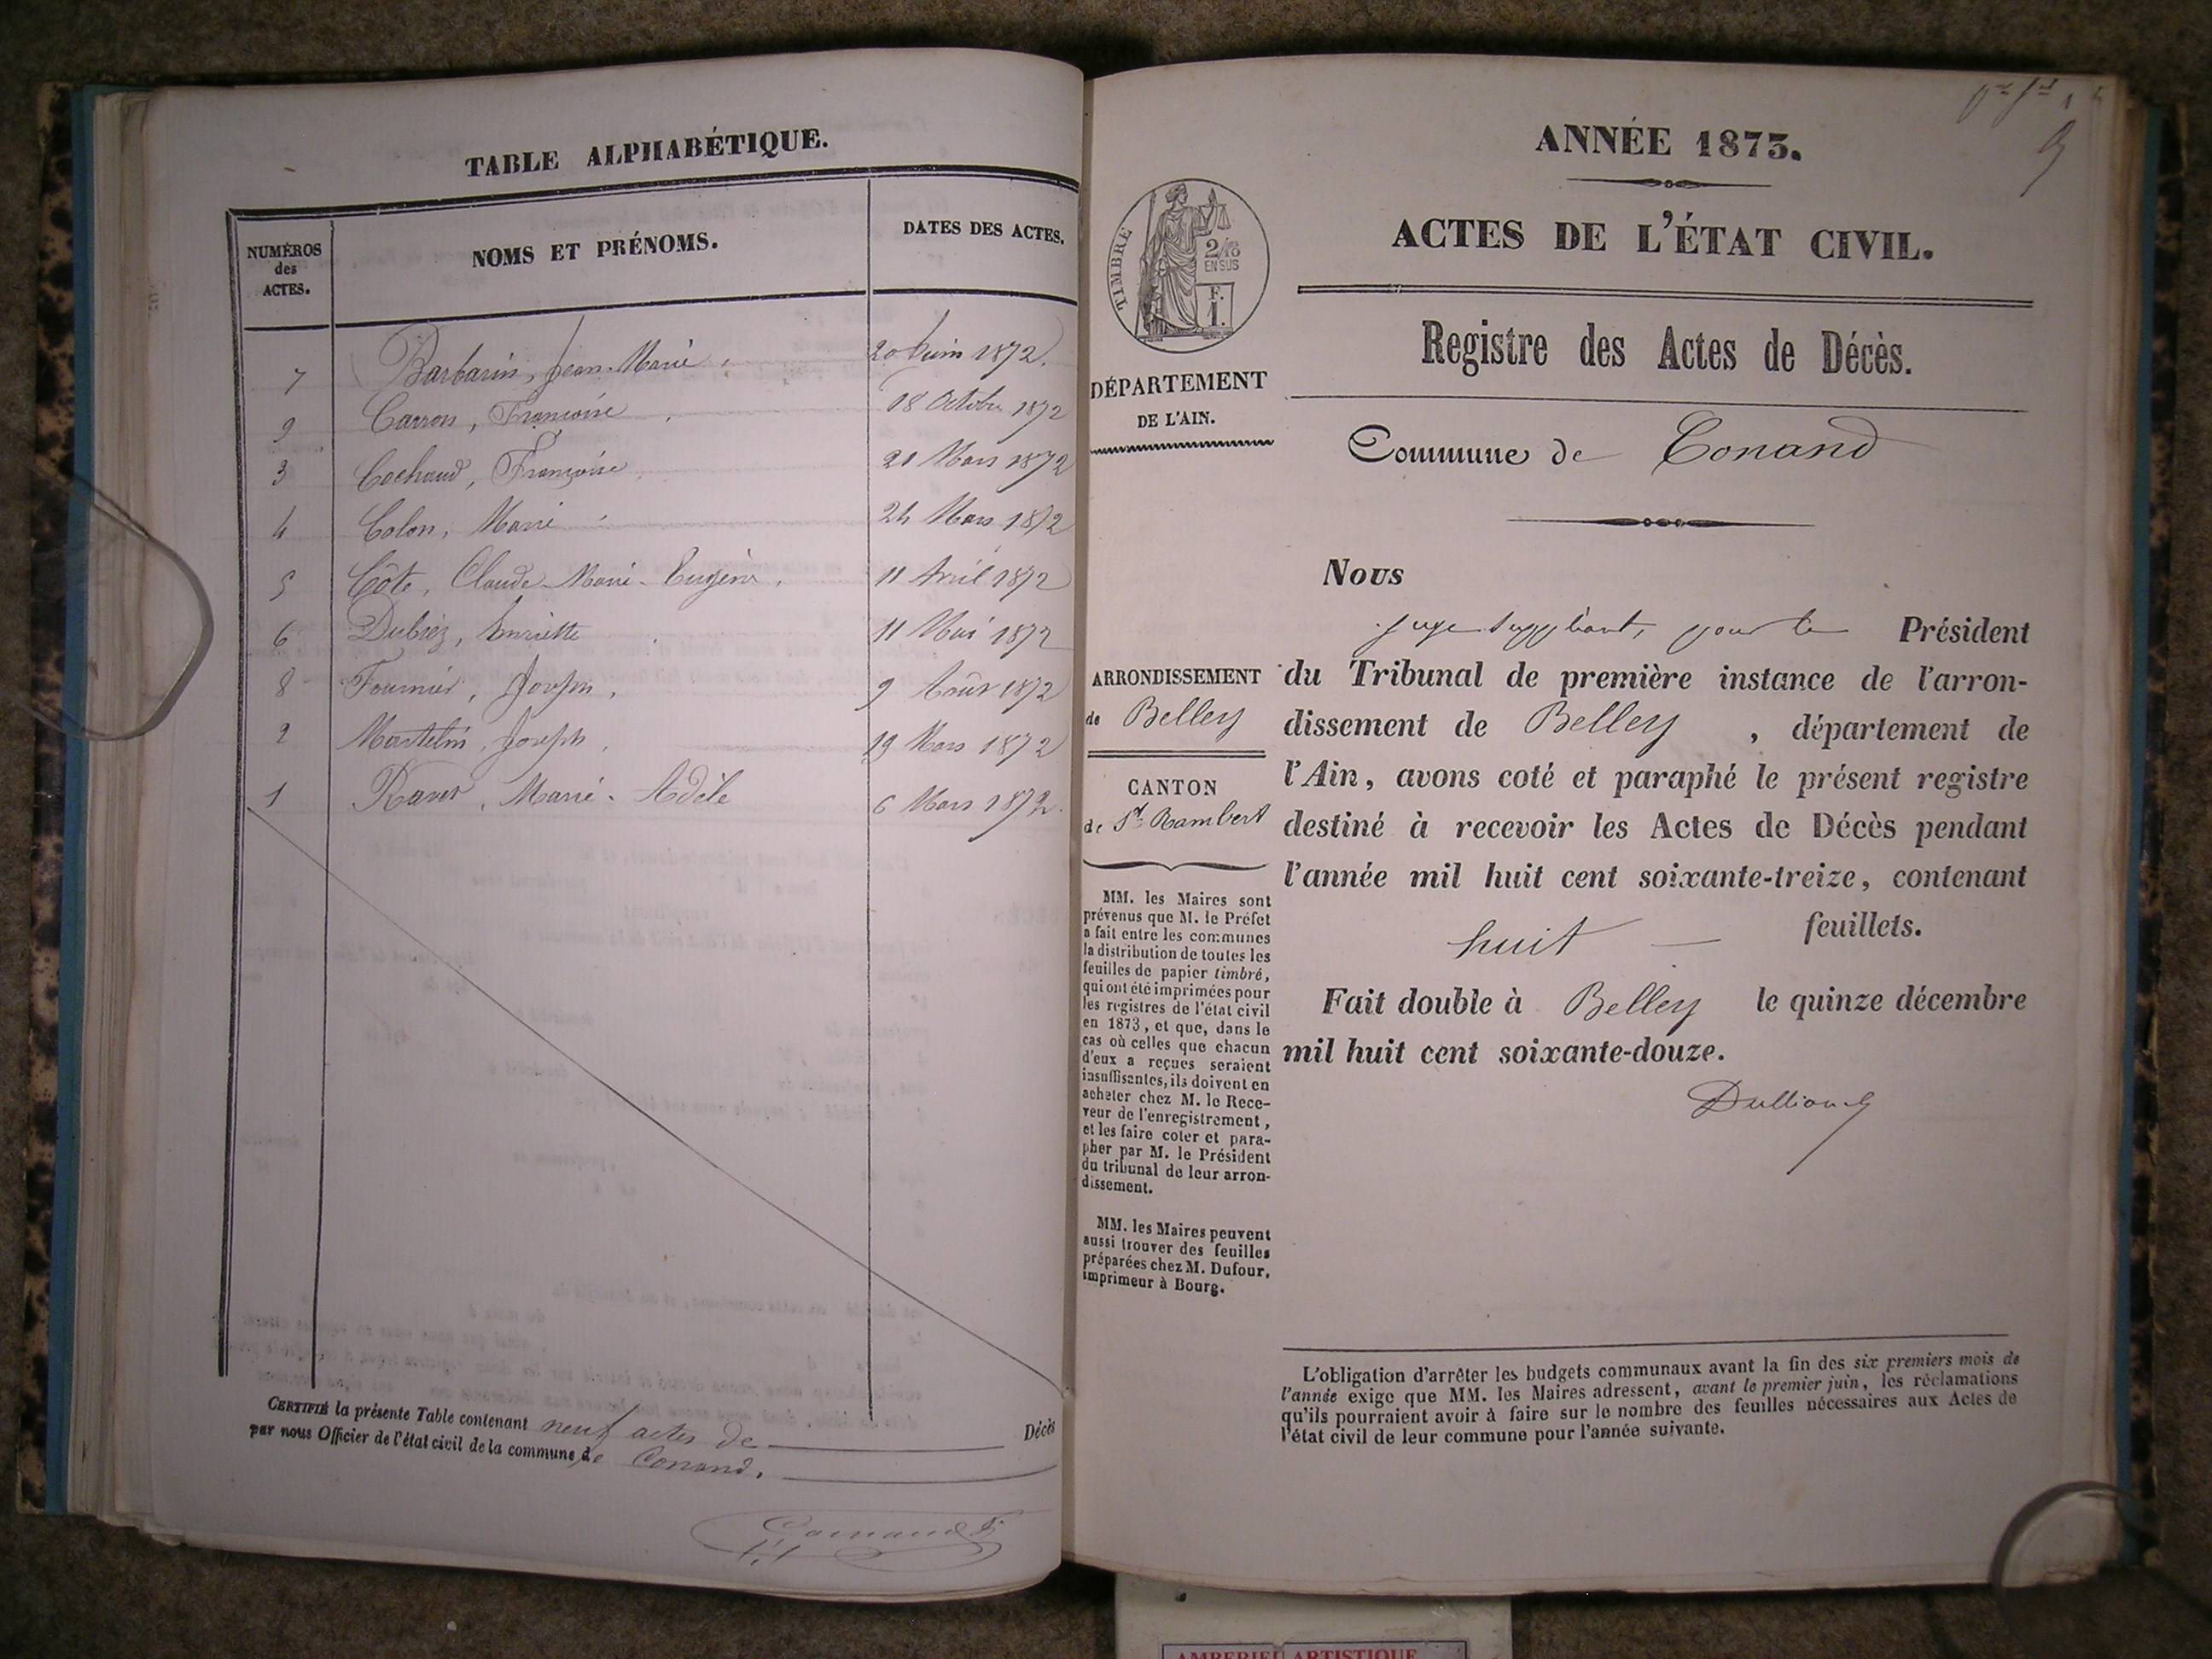 TABLE ALPHABÉTIQUE.
NUMÉROS
des
ACTES.
NOMS ET PRÉNOMS.
DATES DES ACTES.
7 Barbarin, Jean-Marie 20 Juin 1872.
9 Carron, Françoise 18 Octobre 1872
3 Cochaud, Françoise 21 Mars 1872
4 Colon, Marie 24 Mars 1872
5 Côte, Claude-Marie-Eugène. 11 Avril 1872
6 Dubiez, 11 Mai 1872
8 Fournier, Joseph, 9 Août 1872
2 Martelin, Joseph, 19 Mars 1872
1 Ravet, Marie-Adèle 6 Mars 1872.
CERTIFIÉ la présente Table contenant neuf actes de Décès
par nous Officier de l'état civil de la commune de Conand.
ANNÉE 1873.
ACTES DE L'ÉTAT CIVIL.
TIMBRE
2/10
EN SUS
F.
1.
DÉPARTEMENT
DE L'AIN.
Registre des Actes de Décès.
Commune de Conand
Nous
juge suppléant, pour le Président
du Tribunal de première instance de l'arron-
dissement de Belley, département de
l'Ain, avons coté et paraphé le présent registre
destiné à recevoir les Actes de Décès pendant
l'année mil huit cent soixante-treize, contenant
huit feuillets.
Fait double à Belley le quinze décembre
mil huit cent soixante-douze.
ARRONDISSEMENT
de Belley
CANTON
de St Rambert
MM. les Maires sont
prévenus que M. le Préfet
a fait entre les communes
la distribution de toutes les
feuilles de papier timbré,
qui ont été imprimées pour
les registres de l'état civil
en 1873, et que, dans le
cas où celles que chacun
d'eux a reçues seraient
insuffisantes, ils doivent en
acheter chez M. le Rece-
veur de l'enregistrement,
et les faire coter et para-
pher par M. le Président
du tribunal de leur arron-
dissement.
MM. les Maires peuvent
aussi trouver des feuilles
préparées chez M. Dufour,
imprimeur à Bourg.
L'obligation d'arrêter les budgets communaux avant la fin des six premiers mois de
l'année exige que MM. les Maires adressent, avant le premier juin, les réclamations
qu'ils pourraient avoir à faire sur le nombre des feuilles nécessaires aux Actes de
l'état civil de leur commune pour l'année suivante.
AMBERIEU ARTISTIQUE